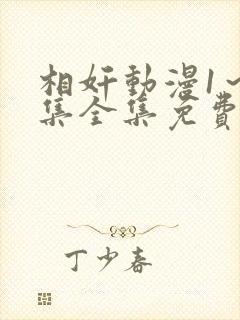 相奸動漫1~
集全集免費
丁少春